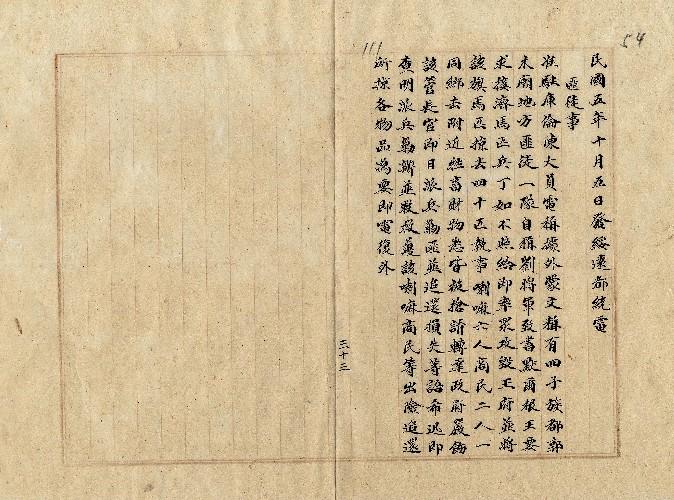 54
111
民國五年十月五日發綏遠都統電
匪徒事
准駐庫倫陳大員電稱據外蒙文稱有四子族郡郭
木廟地方匪徒一隊自稱劉將軍致書默爾根王要
求接濟馬匹兵丁如不照給即率眾攻毀王府並將
該旗馬匹掠去四十匹執事喇嘛六人商民二人一
同綁去附近牲畜財物悉安被搶訴轉達政府嚴飭
該管長官即日派兵勦匪並追還損失等語希迅即
查明派兵勦辦並救護該喇嘛商民等出險追還
所掠各物品為要即電復外
三十三